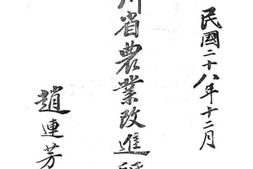 民國二十八年十二月
川省農業改進
趙連芳